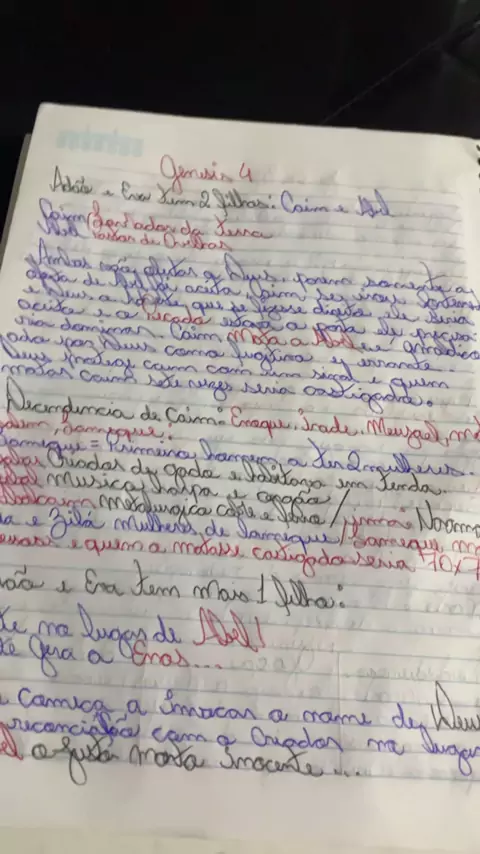 Genesis 4
Adão e Eva tem 2 filhos: Caim e Abel
Caim lavrador da terra
Abel Pastor de Ovelhas
Ambos dão ofertas a Deus, porem somente a
oferta de Abel foi aceita, Caim se
e Deus a que se fizesse direito ele seria
aceito e o Pecado estava a porta ele precisa
ria dominar. Caim Mata a Abel e é amaldiço
ado por Deus como fugitivo e errante.
Deus protege Caim com um sinal e quem
matar Caim sete vezes seria castigado.
Decendencia de Caim: Enoque, Irade, Meujael, me
Lameque.
Lameque = Primeiro homem a ter 2 mulheres.
Criador de gado e habitava em tenda.
Musica harpa e
metalurgica cobre e ferro / irmã Noema
e Zilá mulheres de Lameque / Lameque
e quem o matasse castigado seria 70x7
e Eva tem mais 1 filho:
no lugar de Abel!
gera a Enos...
comeca a invocar o nome de Deus
reconciliação com o Criador no lugar
o justo morto inocente...